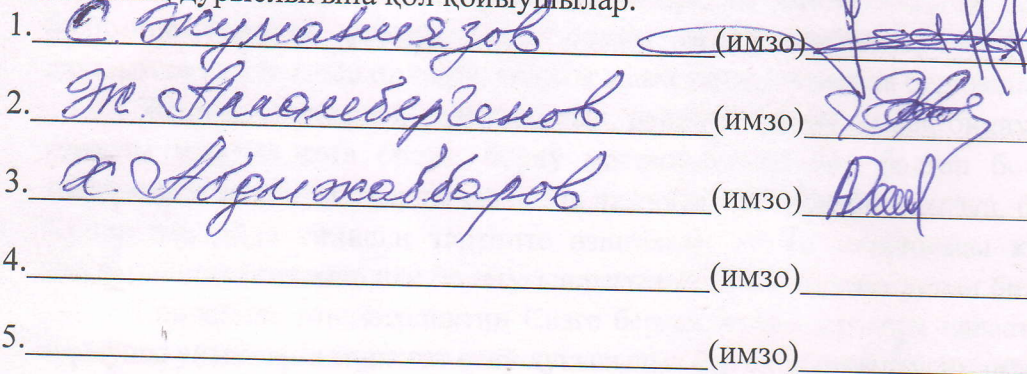 дурыслығына қол қойыушылар:
1. С. Жуманиязов (имзо)
2. Ж. Алламбергенов (имзо)
3. Х. Абдижабборов (имзо)
4. (имзо)
5. (имзо)